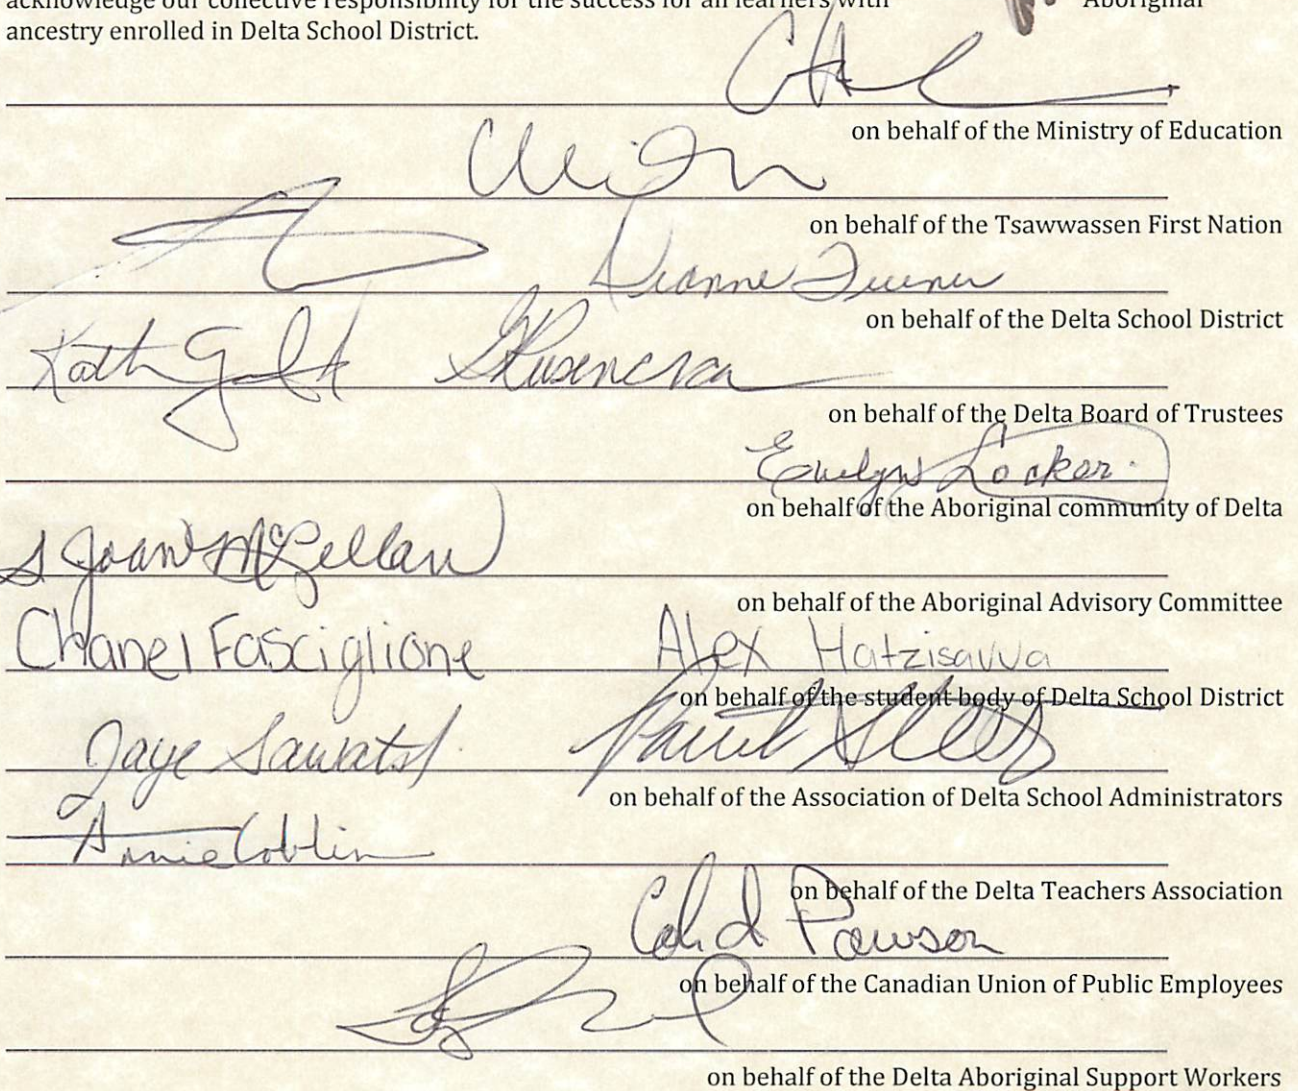 acknowledge our collective responsibility for the success for all learners with Aboriginal
ancestry enrolled in Delta School District.
on behalf of the Ministry of Education
on behalf of the Tsawwassen First Nation
Dianne Turner
on behalf of the Delta School District
on behalf of the Delta Board of Trustees
Evelyn Locker
on behalf of the Aboriginal community of Delta
S Joan McLellan
on behalf of the Aboriginal Advisory Committee
Chanel Fasciglione Alex Hatzisavva
on behalf of the student body of Delta School District
Jaye
on behalf of the Association of Delta School Administrators
Annie
on behalf of the Delta Teachers Association
Pawson
on behalf of the Canadian Union of Public Employees
on behalf of the Delta Aboriginal Support Workers